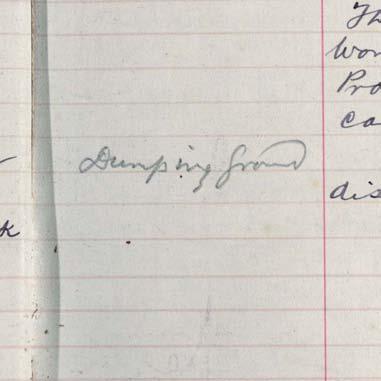 Th
Wor
Pro
Ca
Dumping Ground
dis
k